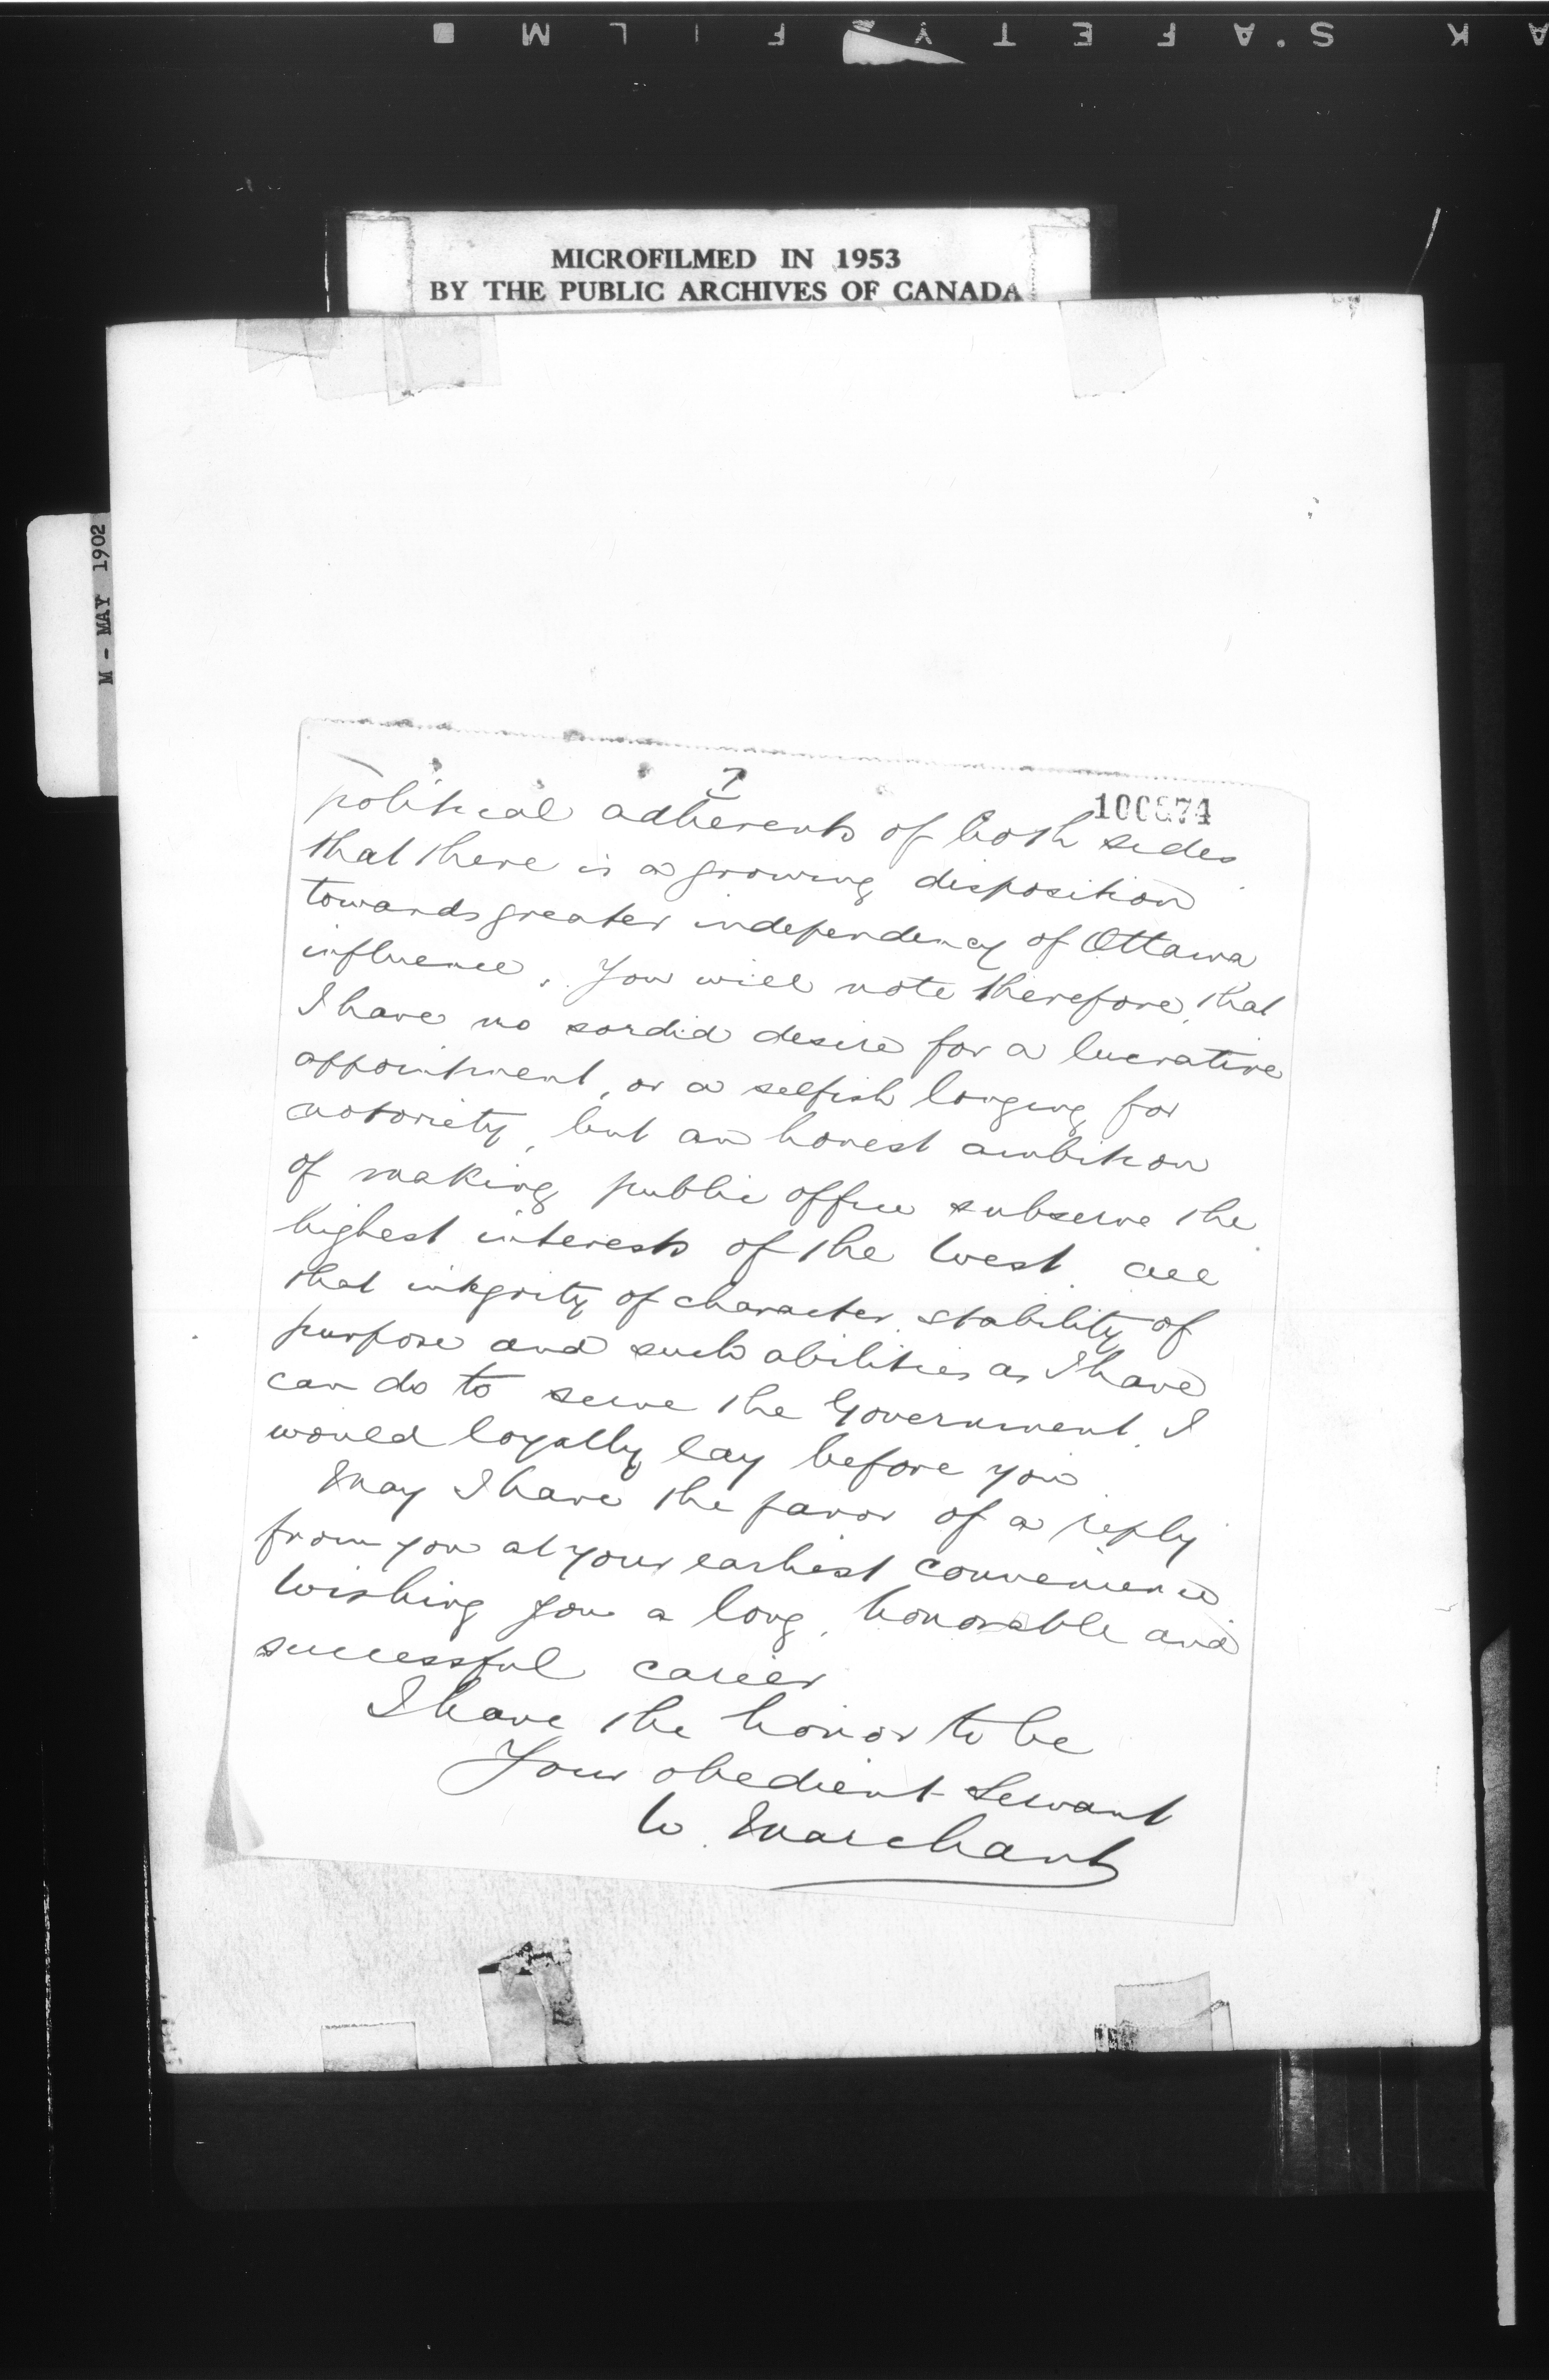 A K S'AFETY FILM
MICROFILMED IN 1953
BY THE PUBLIC ARCHIVES OF CANADA
M - MAY 1902
7
100874
political adherents of both sides
that there is a growing disposition
towards greater independency of Ottawa
influence. You will note therefore, that
I have no sordid desire for a lucrative
appointment, or a selfish longing for
notoriety, but an honest ambition
of making public office subserve the
highest interests of the West. all
that integrity of character, stability of
purpose and such abilities as I have
can do to serve the Government, I
would loyally lay before you.
May I have the favor of a reply
from you at your earliest convenience
Wishing you a long, honorable and
successful career
I have the honor to be
Your obedient Servant
W. Marchant